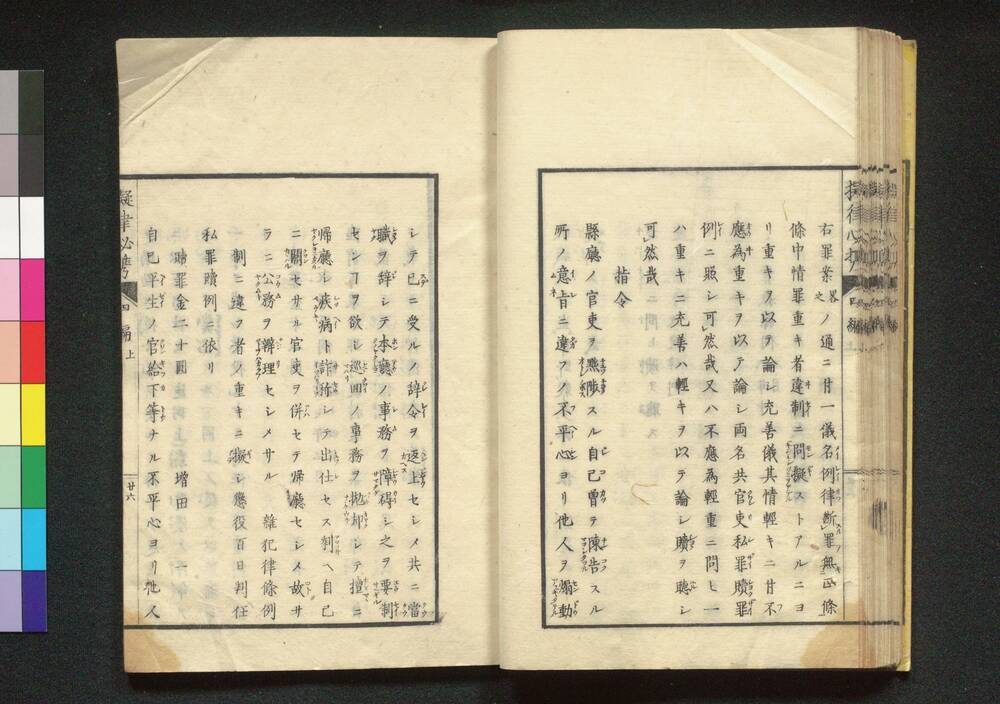 右罪案略之ノ通ニ廿一儀名例律断罪無正條
條中情罪重キ者違制ニ問擬ストアルニヨ
リ重キヲ以テ論シ充善儀其情輕キニ廿不
應為重キヲ以テ論シ両名共官吏私罪贖罪
例ニ照シ可然哉又ハ不應為輕重ニ問ヒ一
ハ重キニ充善ハ輕キヲ以テ論シ贖ヲ聴シ
可然哉
指令
縣廳ノ官吏ヲ黜陟スル自己曽テ陳告スル
所ノ意旨ニ違フノ不平心ヨリ他人ヲ煽動
シテ已ニ受ルノ辞令ヲ返上セシメ共ニ當
職ヲ辞シテ本廳ノ事務ヲ障碍シ之ヲ要制
センヿヲ欲シ巡回ノ事務ヲ抛却シテ擅ニ
帰廳シ疾病ト詐称シテ出仕セス剰ヘ自己
ニ關セサル官吏ヲ併セテ帰廳セシメ故サ
ラニ公務ヲ辨理セシメサル 雑犯律條例
制ニ違フ者ノ重キニ擬シ懲役百日判任
私罪贖例ニ依リ
贖罪金二十圓 増田 一
自己平生ノ官給下等ナル不平心ヨリ他人
擬律必携 四編上 廿六